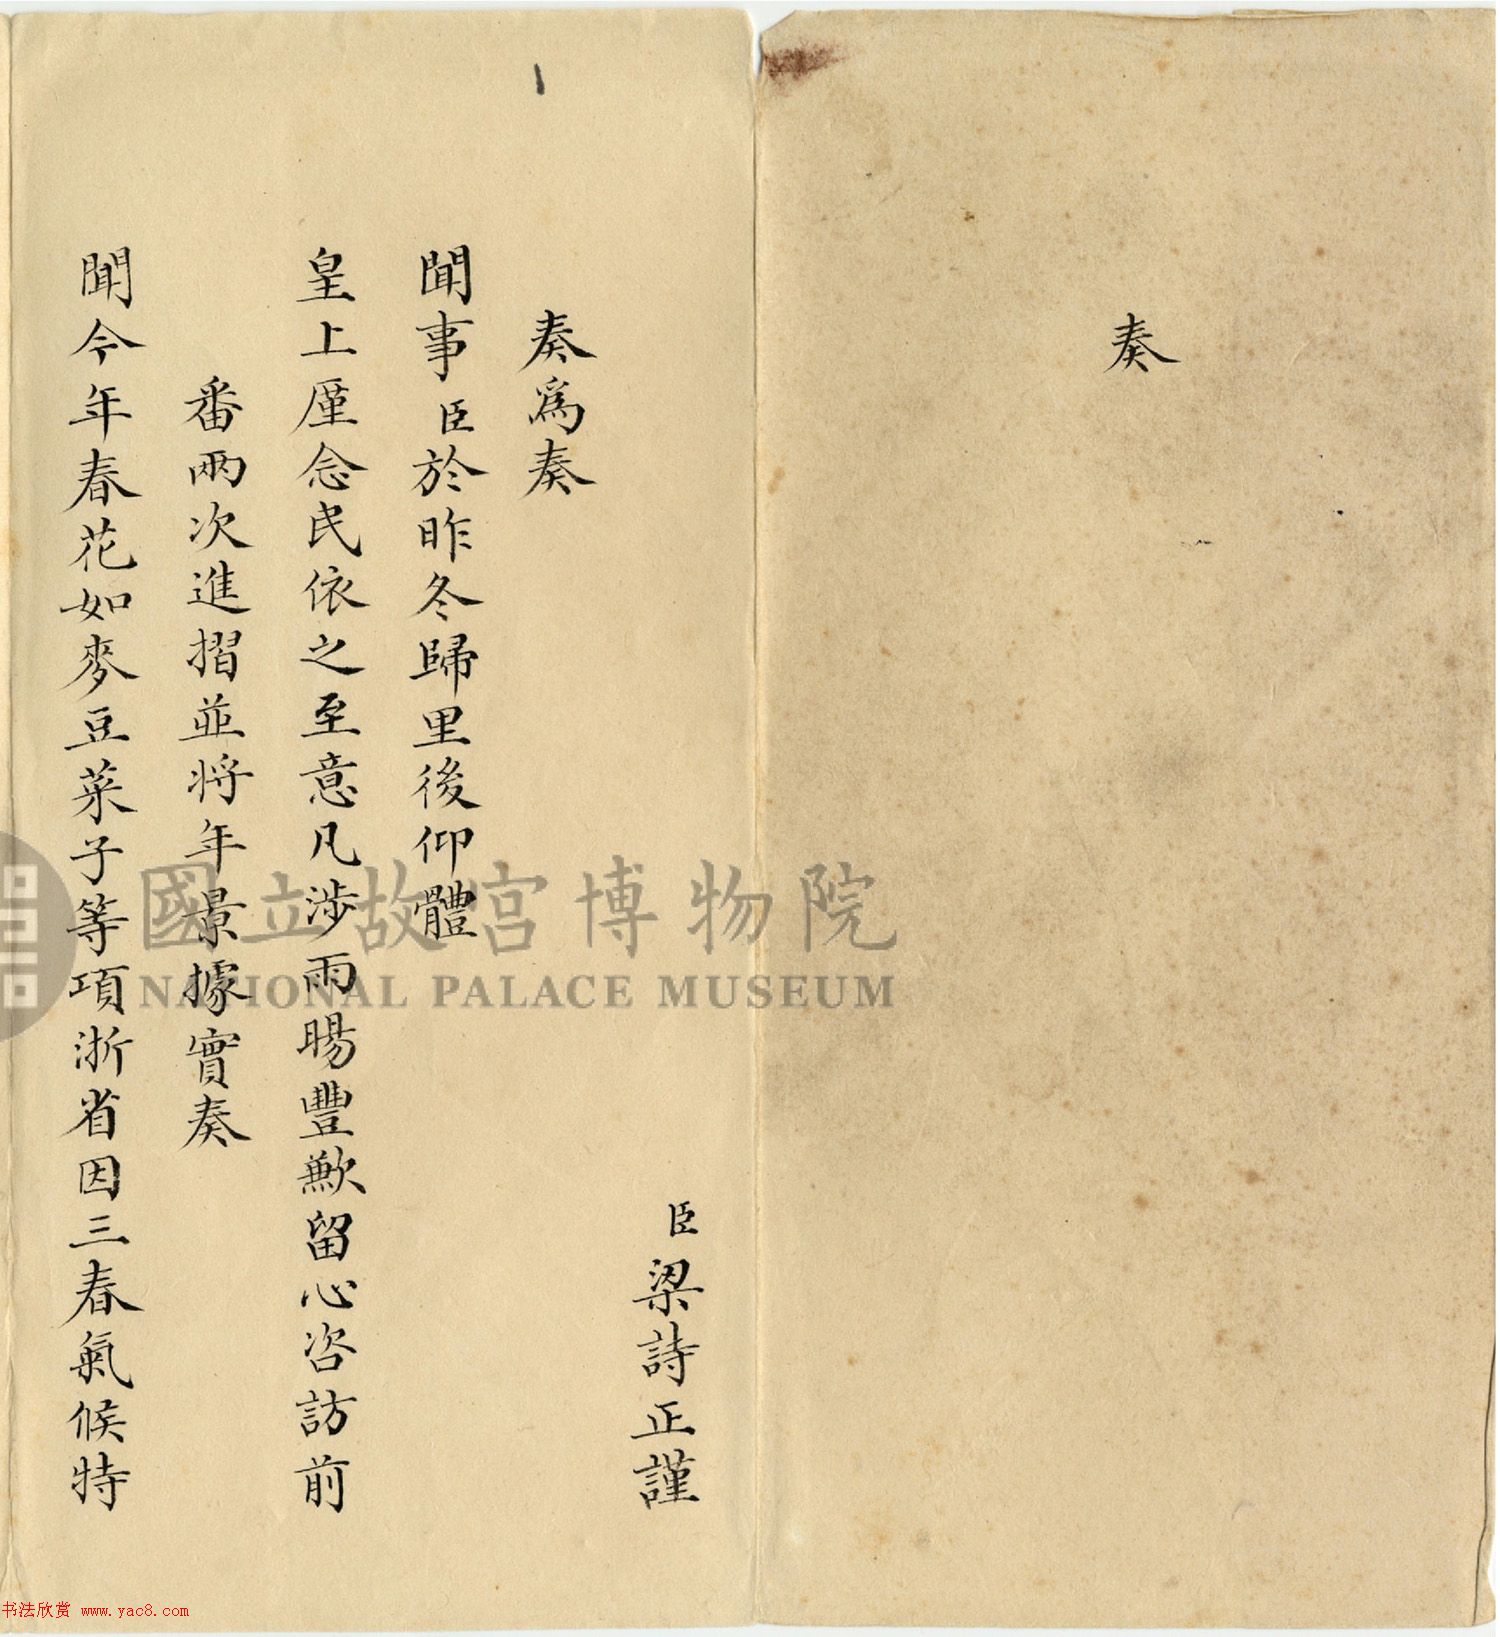 奏
臣梁詩正謹
奏為奏
聞事臣於昨冬歸里後仰體
皇上厪念民依之至意凡涉雨暘豐歉留心咨訪前
番兩次進摺並將年景據實奏
聞今年春花如麥豆菜子等項浙省因三春氣候特
國立故宮博物院
NATIONAL PALACE MUSEUM
书法欣赏 www.yac8.com